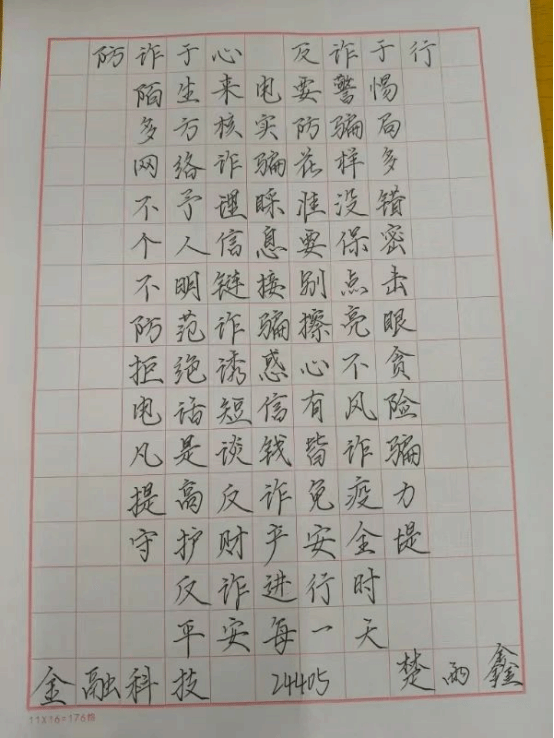 防诈于心 反诈于行
陌生来电要警惕
多方核实防骗局
网络诈骗花样多
不予理睬准没错
个人信息要保密
不明链接别点击
防范诈骗擦亮眼
拒绝诱惑心不贪
电话短信有风险
凡是谈钱皆诈骗
提高反诈免疫力
守护财产安全堤
反诈进行时
平安每一天
金融科技 24405 楚雨鑫
11X16=176格